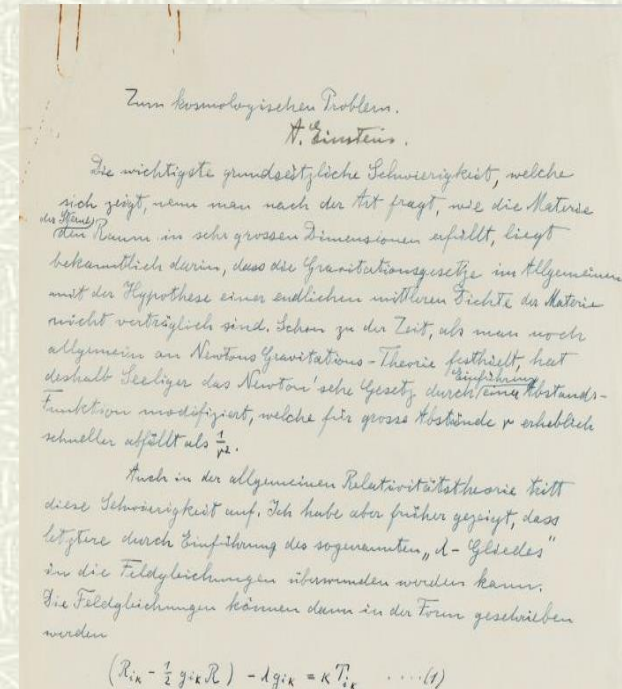 Zum kosmologischen Problem.
A. Einstein.
Die wichtigste grundsätzliche Schwierigkeit, welche
sich zeigt, wenn man nach der Art fragt, wie die Materie
der Sterne
den Raum in sehr grossen Dimensionen erfüllt, liegt
bekanntlich darin, dass die Gravitationsgesetze im Allgemeinen
mit der Hypothese einer endlichen mittleren Dichte der Materie
nicht verträglich sind. Schon zu der Zeit, als man noch
allgemein an Newtons Gravitations-Theorie festhielt, hat
Einführung
deshalb Seeliger das Newton'sche Gesetz durch eine Abstands-
Funktion modifiziert, welche für grosse Abstände r erheblich
schneller abfällt als 1/r².
Auch in der allgemeinen Relativitätstheorie tritt
diese Schwierigkeit auf. Ich habe aber früher gezeigt, dass
letztere durch Einführung des sogenannten „λ-Gliedes"
in die Feldgleichungen überwunden werden kann.
Die Feldgleichungen können dann in der Form geschrieben
werden
(R_ik - 1/2 g_ik R) - λ g_ik = κ T_ik .....(1)